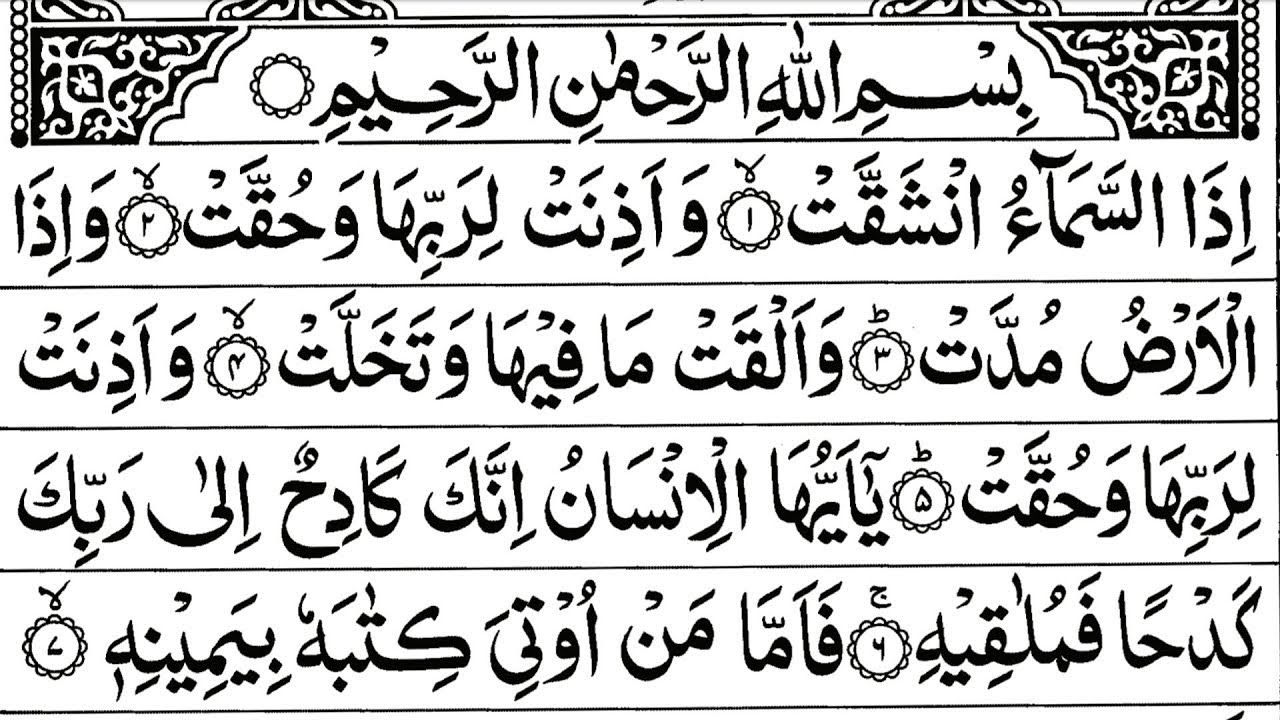 بِسْمِ اللّٰهِ الرَّحْمٰنِ الرَّحِيْمِ
اِذَا السَّمَآءُ انْشَقَّتْ ۙ‏﴿۱﴾ وَ اَذِنَتْ لِرَبِّهَا وَ حُقَّتْ ۙ‏﴿۲﴾ وَ اِذَا
الْاَرْضُ مُدَّتْ ؕ‏﴿۳﴾ وَ اَلْقَتْ مَا فِيْهَا وَ تَخَلَّتْ ۙ‏﴿۴﴾ وَ اَذِنَتْ
لِرَبِّهَا وَ حُقَّتْ ؕ‏﴿۵﴾ يٰۤاَيُّهَا الْاِنْسَانُ اِنَّكَ كَادِحٌ اِلٰى رَبِّكَ
كَدْحًا فَمُلٰقِيْهِ ۚ‏﴿۶﴾ فَاَمَّا مَنْ اُوْتِيَ كِتٰبَهٗ بِيَمِيْنِهٖ ۙ‏﴿۷﴾